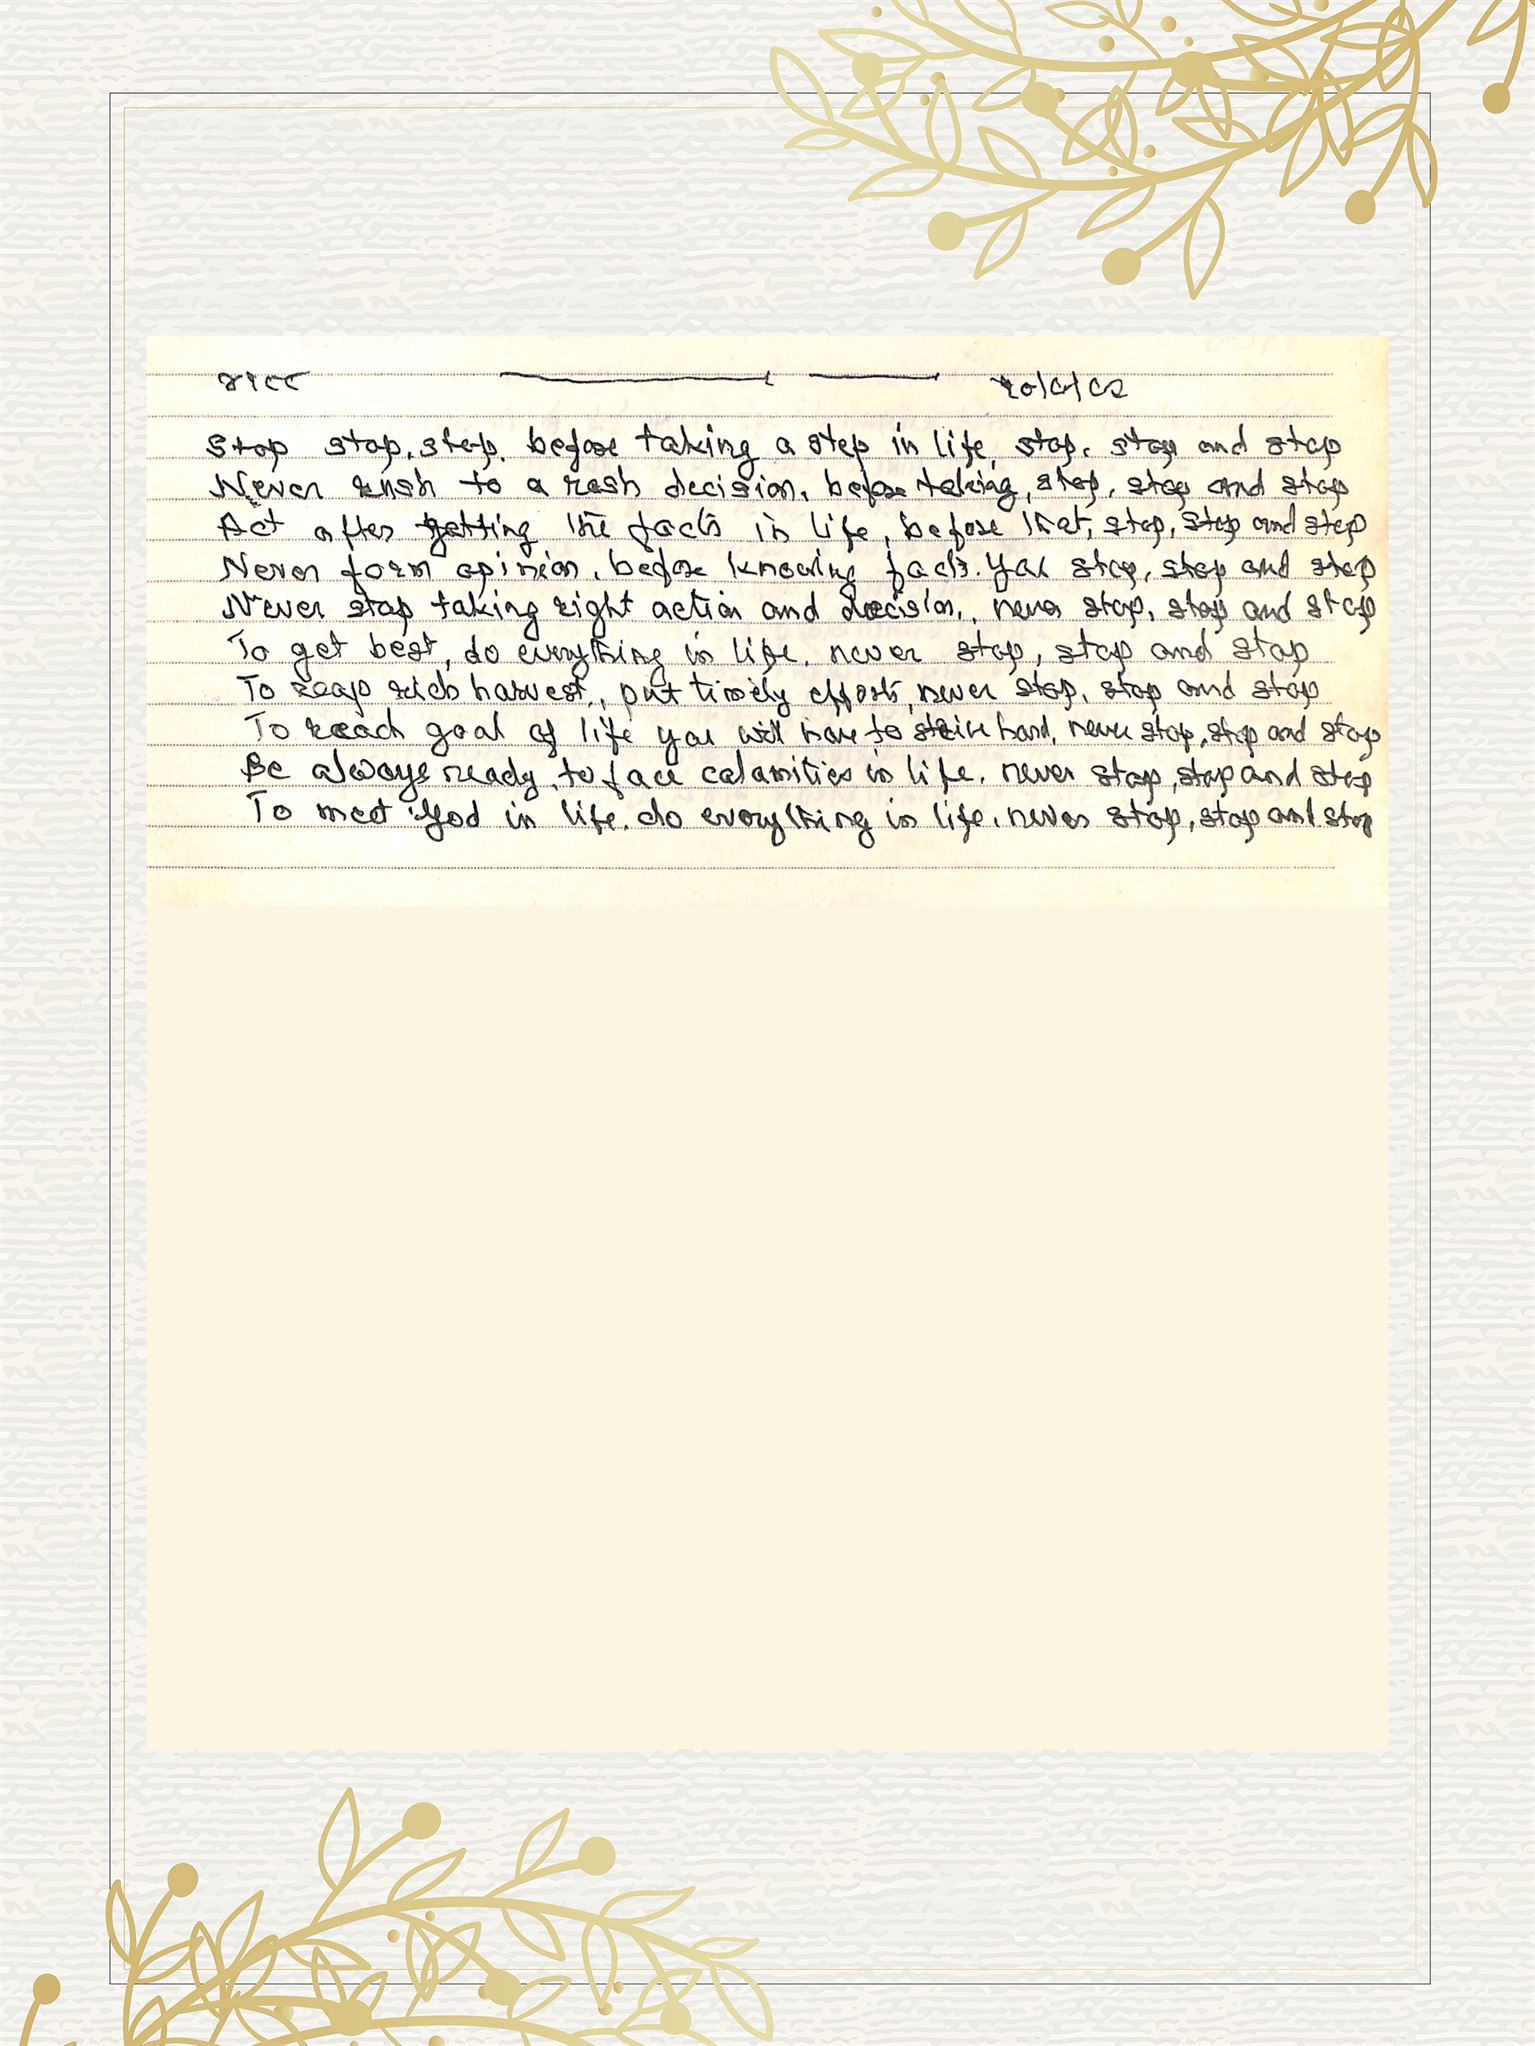 Stop stop, stop. before taking a step in life, stop. stop and stop
Never rush to a rash decision, before taking, stop, stop and stop
Act after getting the facts in life, before that, stop, stop and stop
Never form opinion, before knowing facts. You stop, stop and stop
Never stop taking right action and decision, never stop, stop and stop
To get best, do everything in life, never stop, stop and stop
To reap rich harvest, put timely efforts, never stop, stop and stop
To reach goal of life you will have to strive hard, never stop, stop and stop
Be always ready, to face calamities in life, never stop, stop and stop
To meet God in life, do everything in life, never stop, stop and stop